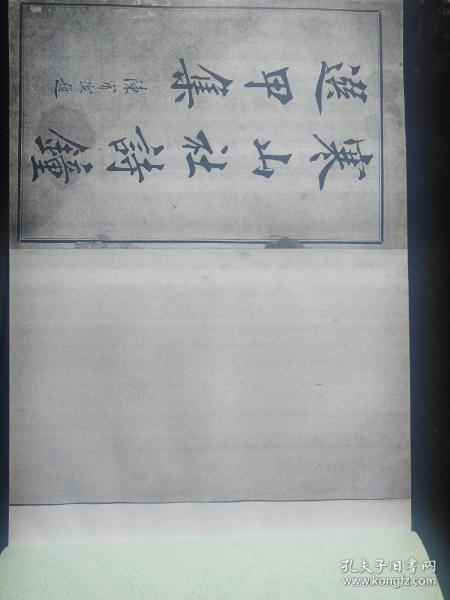 寒山社詩鐘
選甲集
陳寶琛題
孔夫子旧书网
www.kongfz.com